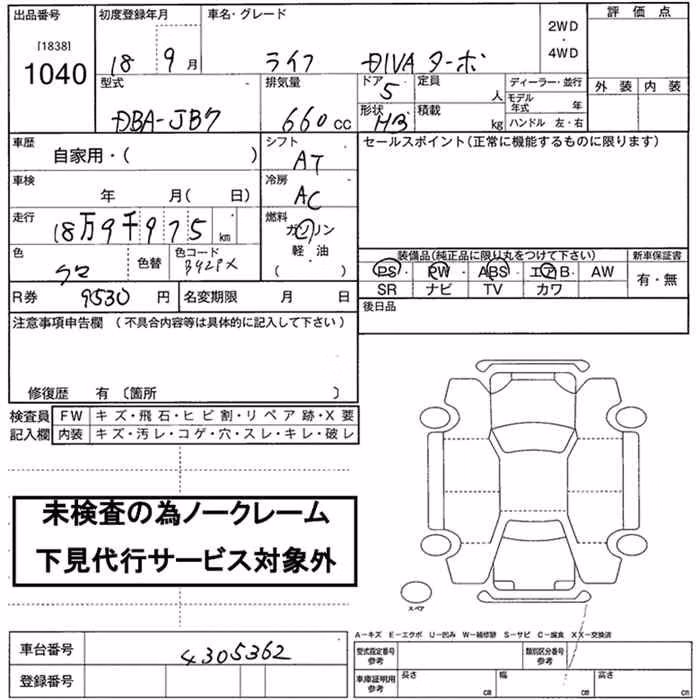 出品番号 初度登録年月 車名・グレード 2WD・4WD 評価点
[1838]
1040 18 9月 ライフ DIVA ターボ
型式 排気量 ドア 5 定員 人 ディーラー・並行 外装 内装
DBA-JB7 660cc 形状 HB 積載 kg モデル年式 年
ハンドル 左・右
車歴 自家用・( ) シフト AT セールスポイント(正常に機能するものに限ります)
車検 年 月( 日) 冷房 AC
走行 18万9千975km 燃料 ガソリン
軽・油
( )
色 クロ 色替 色コード B92PX
装備品(純正品に限り丸をつけて下さい) 新車保証書
PS・PW・ABS・エアB・AW 有・無
SR ナビ TV カワ
R券 9530円 名変期限 月 日 後日品
注意事項申告欄 (不具合内容等は具体的に記入して下さい)
修復歴 有 〔箇所 〕
検査員 FW キズ・飛石・ヒビ割・リペア跡・X要
記入欄 内装 キズ・汚レ・コゲ・穴・スレ・キレ・破レ
未検査の為ノークレーム
下見代行サービス対象外
スペア
A－キズ E－エクボ U－凹み W－補修跡 S－サビ C－腐食 XX－交換済
車台番号 4305362 型式指定番号 参考 類別区分番号 参考
登録番号 車庫証明用 参考 長さ cm 幅 cm 高さ cm